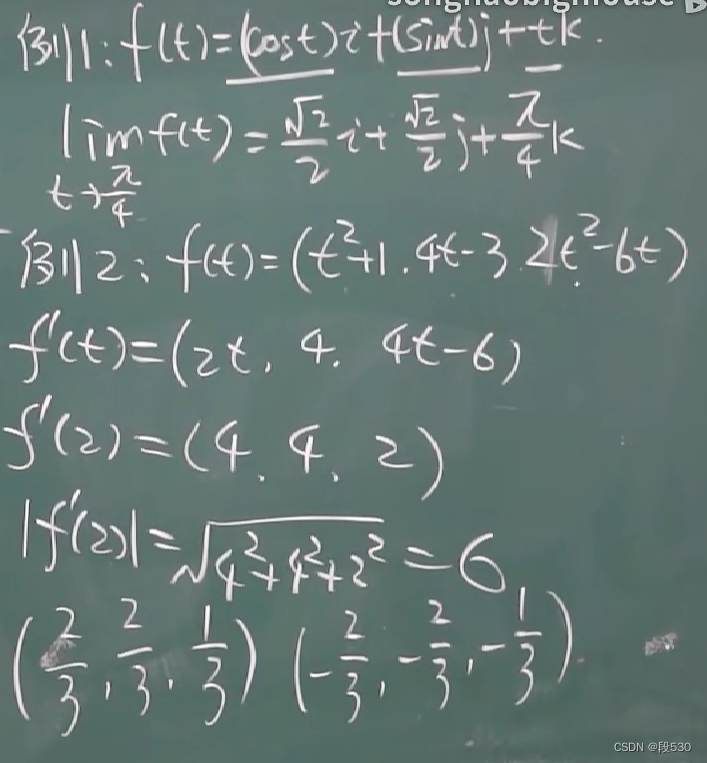 songhaobigmouse
例1:f(t)=(cost)i+(sint)j+tk.
lim f(t)=√2/2 i+√2/2 j+π/4 k
t→π/4
例2:f(t)=(t²+1.4t-3.2t²-6t)
f'(t)=(2t, 4. 4t-6)
f'(2)=(4、4、2)
|f'(2)|=√4²+4²+2²=6
(2/3,2/3,1/3) (-2/3,-2/3,-1/3)
CSDN @段530